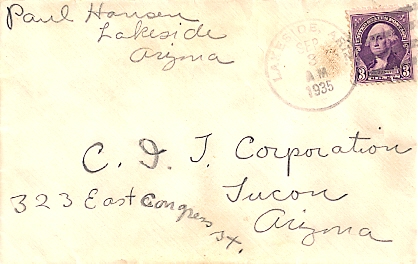 Paul Hansen
Lakeside
Arizona
LAKESIDE, ARIZ.
SEP
3
A.M.
1935
3 3
C. I. T. Corporation
323 East Congress St.
Tucon
Arizona